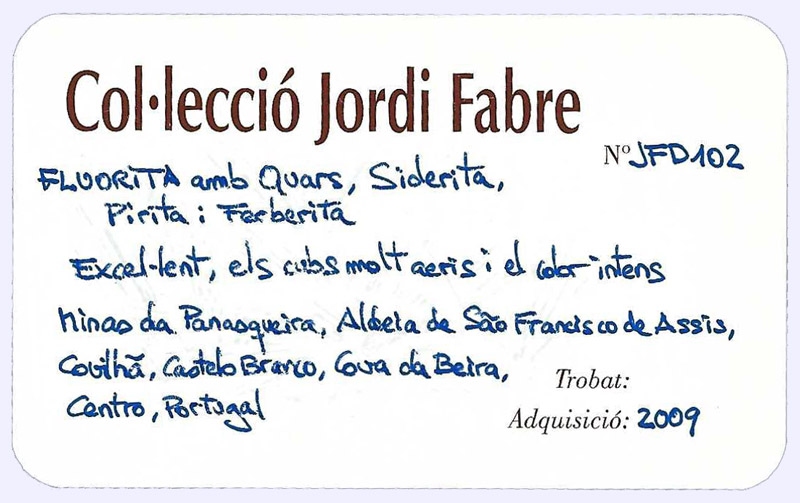 Col·lecció Jordi Fabre
Nº JFD102
FLUORITA amb Quars, Siderita,
Pirita i Ferberita
Excel·lent, els cubs molt aeris i el color intens
Minas da Panasqueira, Aldeia de São Francisco de Assis,
Covilhã, Castelo Branco, Cova da Beira,
Centro, Portugal
Trobat:
Adquisició: 2009